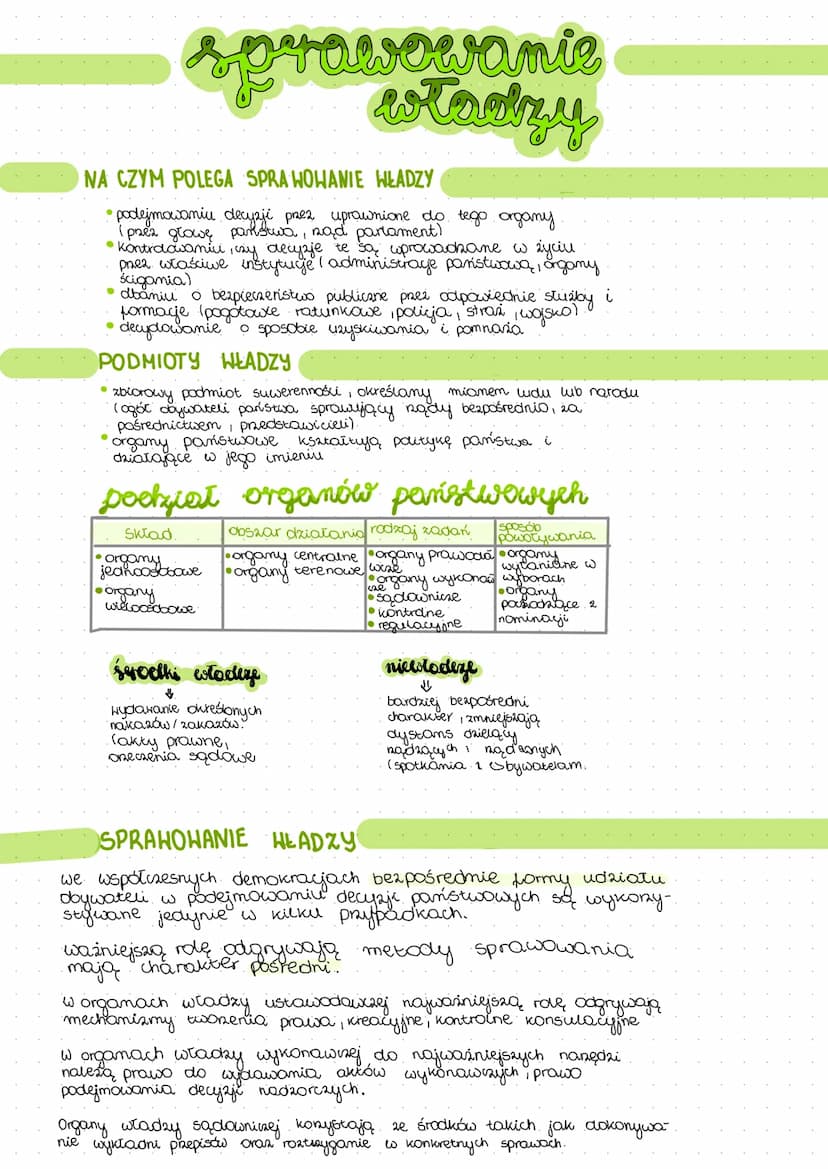 sprawowanie
władzy
NA CZYM POLEGA SPRAWOWANIE WŁADZY
• podejmowaniu decyzji przez uprawnione do tego organy
(przez głowę państwa, rząd parlament)
• kontrolowaniu, czy decyzje te są wprowadzane w życiu
przez właściwe instytucje (administrację państwową, organy
ścigania)
• dbaniu o bezpieczeństwo publiczne przez odpowiednie służby i
formacje (pogotowie ratunkowe, policja, straż, wojsko)
• decydowanie o sposobie uzyskiwania i pomnaża
PODMIOTY WŁADZY
• zbiorowy podmiot suwerenności, określany mianem ludu lub narodu
(ogół obywateli państwa sprawujący rządy bezpośrednio, za
pośrednictwem, przedstawicieli)
• organy państwowe kształtują politykę państwa i
działające w jego imieniu
podział organów państwowych
skład
obszar działania
rodzaj zadań
sposób
powoływania
• organy
jednoosobowe
• organy
wieloosobowe
• organy centralne
• organy terenowe
• organy prawoda
wcze
• organy wykonaw
cze
• sądownicze
• kontrolne
• regulacyjne
• organy
wyłaniane w
wyborach
• organy
pochodzące z
nominacji
środki władcze
↓
wydawanie określonych
nakazów/zakazów.
(akty prawne,
orzeczenia sądowe
niewładcze
⇓
bardziej bezpośredni
charakter, zmniejszają
dystans dzielący
rządzących i rządzonych
(spotkania z obywatelam.
SPRAWOWANIE WŁADZY
we współczesnych demokracjach bezpośrednie formy udziału
obywateli w podejmowaniu decyzji państwowych są wykorzy-
stywane jedynie w kilku przypadkach.
ważniejszą rolę odgrywają metody sprawowania
mają charakter pośredni.
w organach władzy ustawodawczej najważniejszą rolę odgrywają
mechanizmy tworzenia prawa, kreacyjne, kontrolne konsulacyjne
w organach władzy wykonawczej do najważniejszych narzędzi
należą prawo do wydawania aktów wykonawczych, prawo
podejmowania decyzji nadzorczych.
Organy władzy sądowniczej korzystają ze środków takich jak dokonywa-
nie wykładni przepisów oraz rozstrzyganie w konkretnych sprawach.